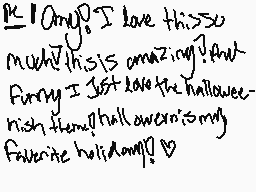 Pt 1 Omg! I love thisso
much! this is amazing! And
Funny I Just love the hallowee-
nish theme! hallowern is my
Faverite holiday! ♡